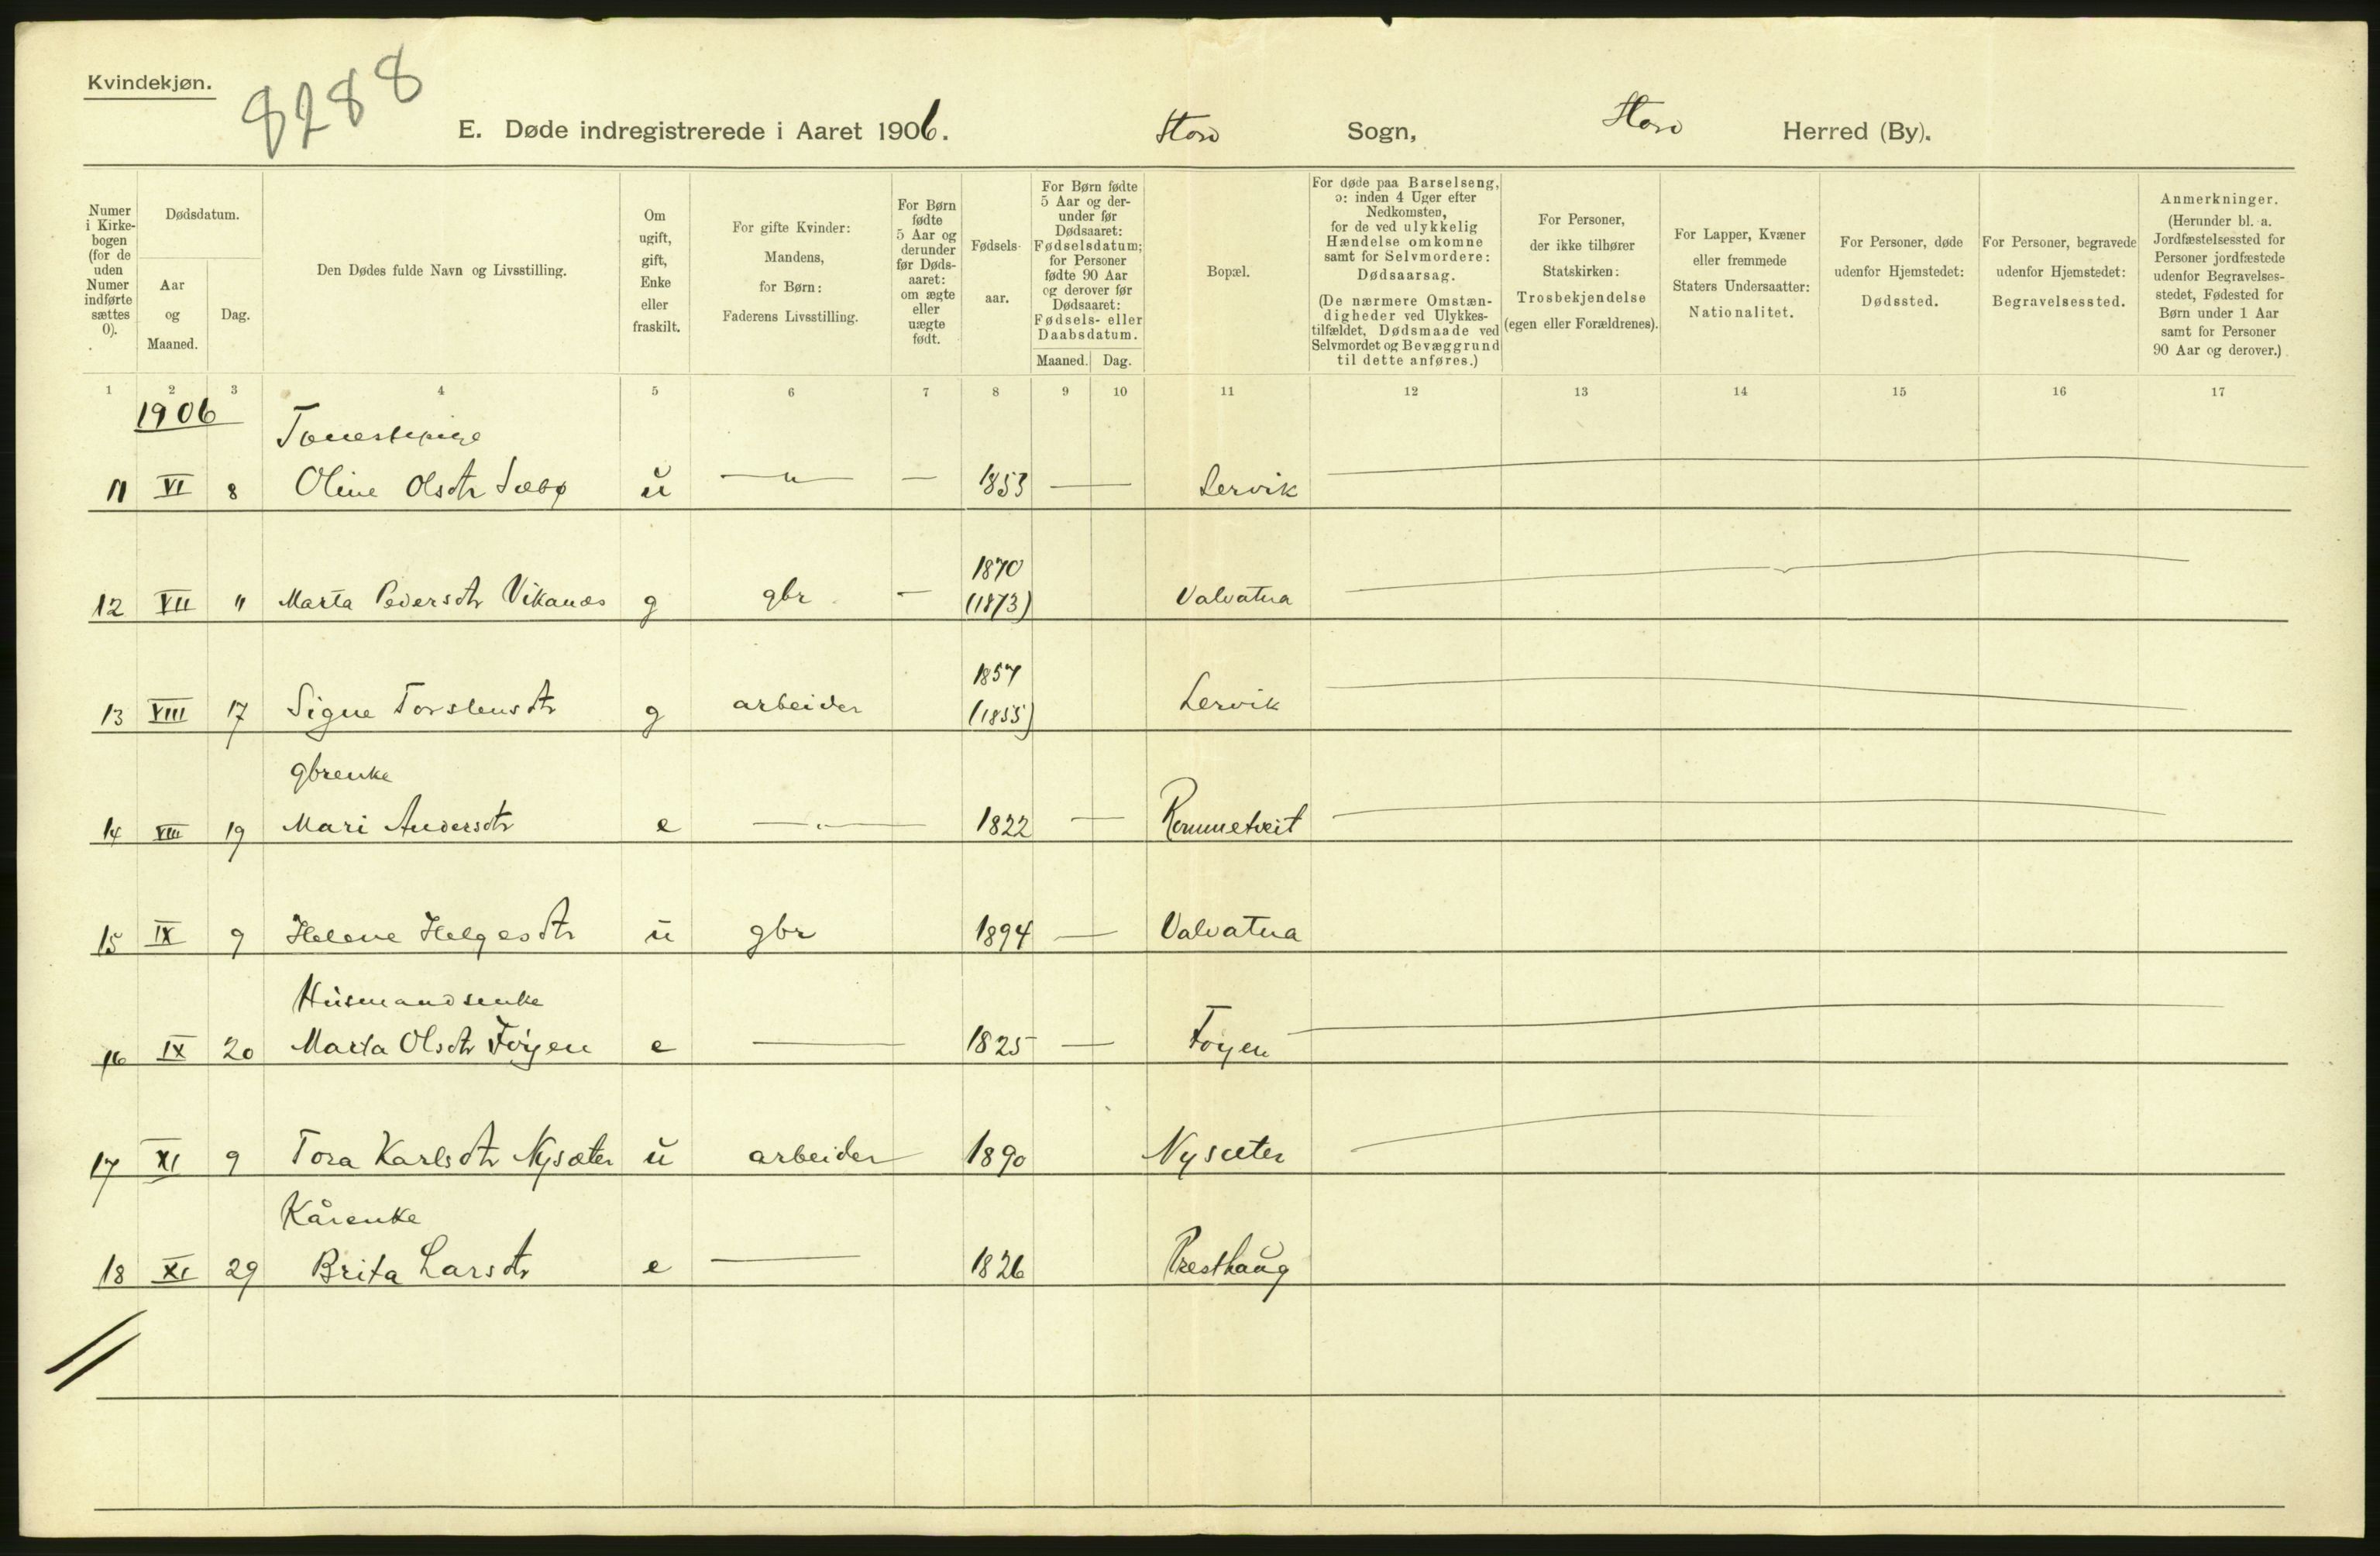 Kvindekjøn.
8288
E. Døde indregistrerede i Aaret 1906. Stord Sogn, Stord Herred (By).
Numer i Kirke-bogen (for de uden Numer indførte sættes 0).
Dødsdatum.
Aar og Maaned.
Dag.
Den Dødes fulde Navn og Livsstilling.
Om ugift, gift, Enke eller fraskilt.
For gifte Kvinder: Mandens, for Børn: Faderens Livsstilling.
For Børn fødte 5 Aar og derunder før Døds-aaret: om ægte eller uægte født.
Fødsels-aar.
For Børn fødte 5 Aar og der-under før Dødsaaret: Fødselsdatum; for Personer fødte 90 Aar og derover før Dødsaaret: Fødsels- eller Daabsdatum.
Maaned. Dag.
Bopæl.
For døde paa Barselseng, ɔ: inden 4 Uger efter Nedkomsten, for de ved ulykkelig Hændelse omkomne samt for Selvmordere: Dødsaarsag.
(De nærmere Omstæn-digheder ved Ulykkes-tilfældet, Dødsmaade ved Selvmordet og Bevæggrund til dette anføres.)
For Personer, der ikke tilhører Statskirken: Trosbekjendelse (egen eller Forældrenes).
For Lapper, Kvæner eller fremmede Staters Undersaatter: Nationalitet.
For Personer, døde udenfor Hjemstedet: Dødssted.
For Personer, begravede udenfor Hjemstedet: Begravelsessted.
Anmerkninger. (Herunder bl. a. Jordfæstelsessted for Personer jordfæstede udenfor Begravelses-stedet, Fødested for Børn under 1 Aar samt for Personer 90 Aar og derover.)
1 2 3 4 5 6 7 8 9 10 11 12 13 14 15 16 17
1906
11 VI 8 Oline Olsdtr Sæbø u — " — — 1853 — Lervik
1870
12 VII " Marta Pedersdtr Vikanæs g gbr — (1873) Valvatna
1857
13 VIII 17 Signe Torstensdtr g arbeider (1855) Lervik
gbrenke
14 VIII 19 Mari Andersdtr e — " — 1822 — Rommetveit
15 IX 9 Helene Helgesdtr u gbr 1894 — Valvatna
Husmandsenke
16 IX 20 Marta Olsdtr Føyen e — 1825 — Føyen
17 XI 9 Tora Karlsdtr Nysæter u arbeider 1890 Nysæter
Kårenke
18 XI 29 Brita Larsdtr e — 1826 Presthaug